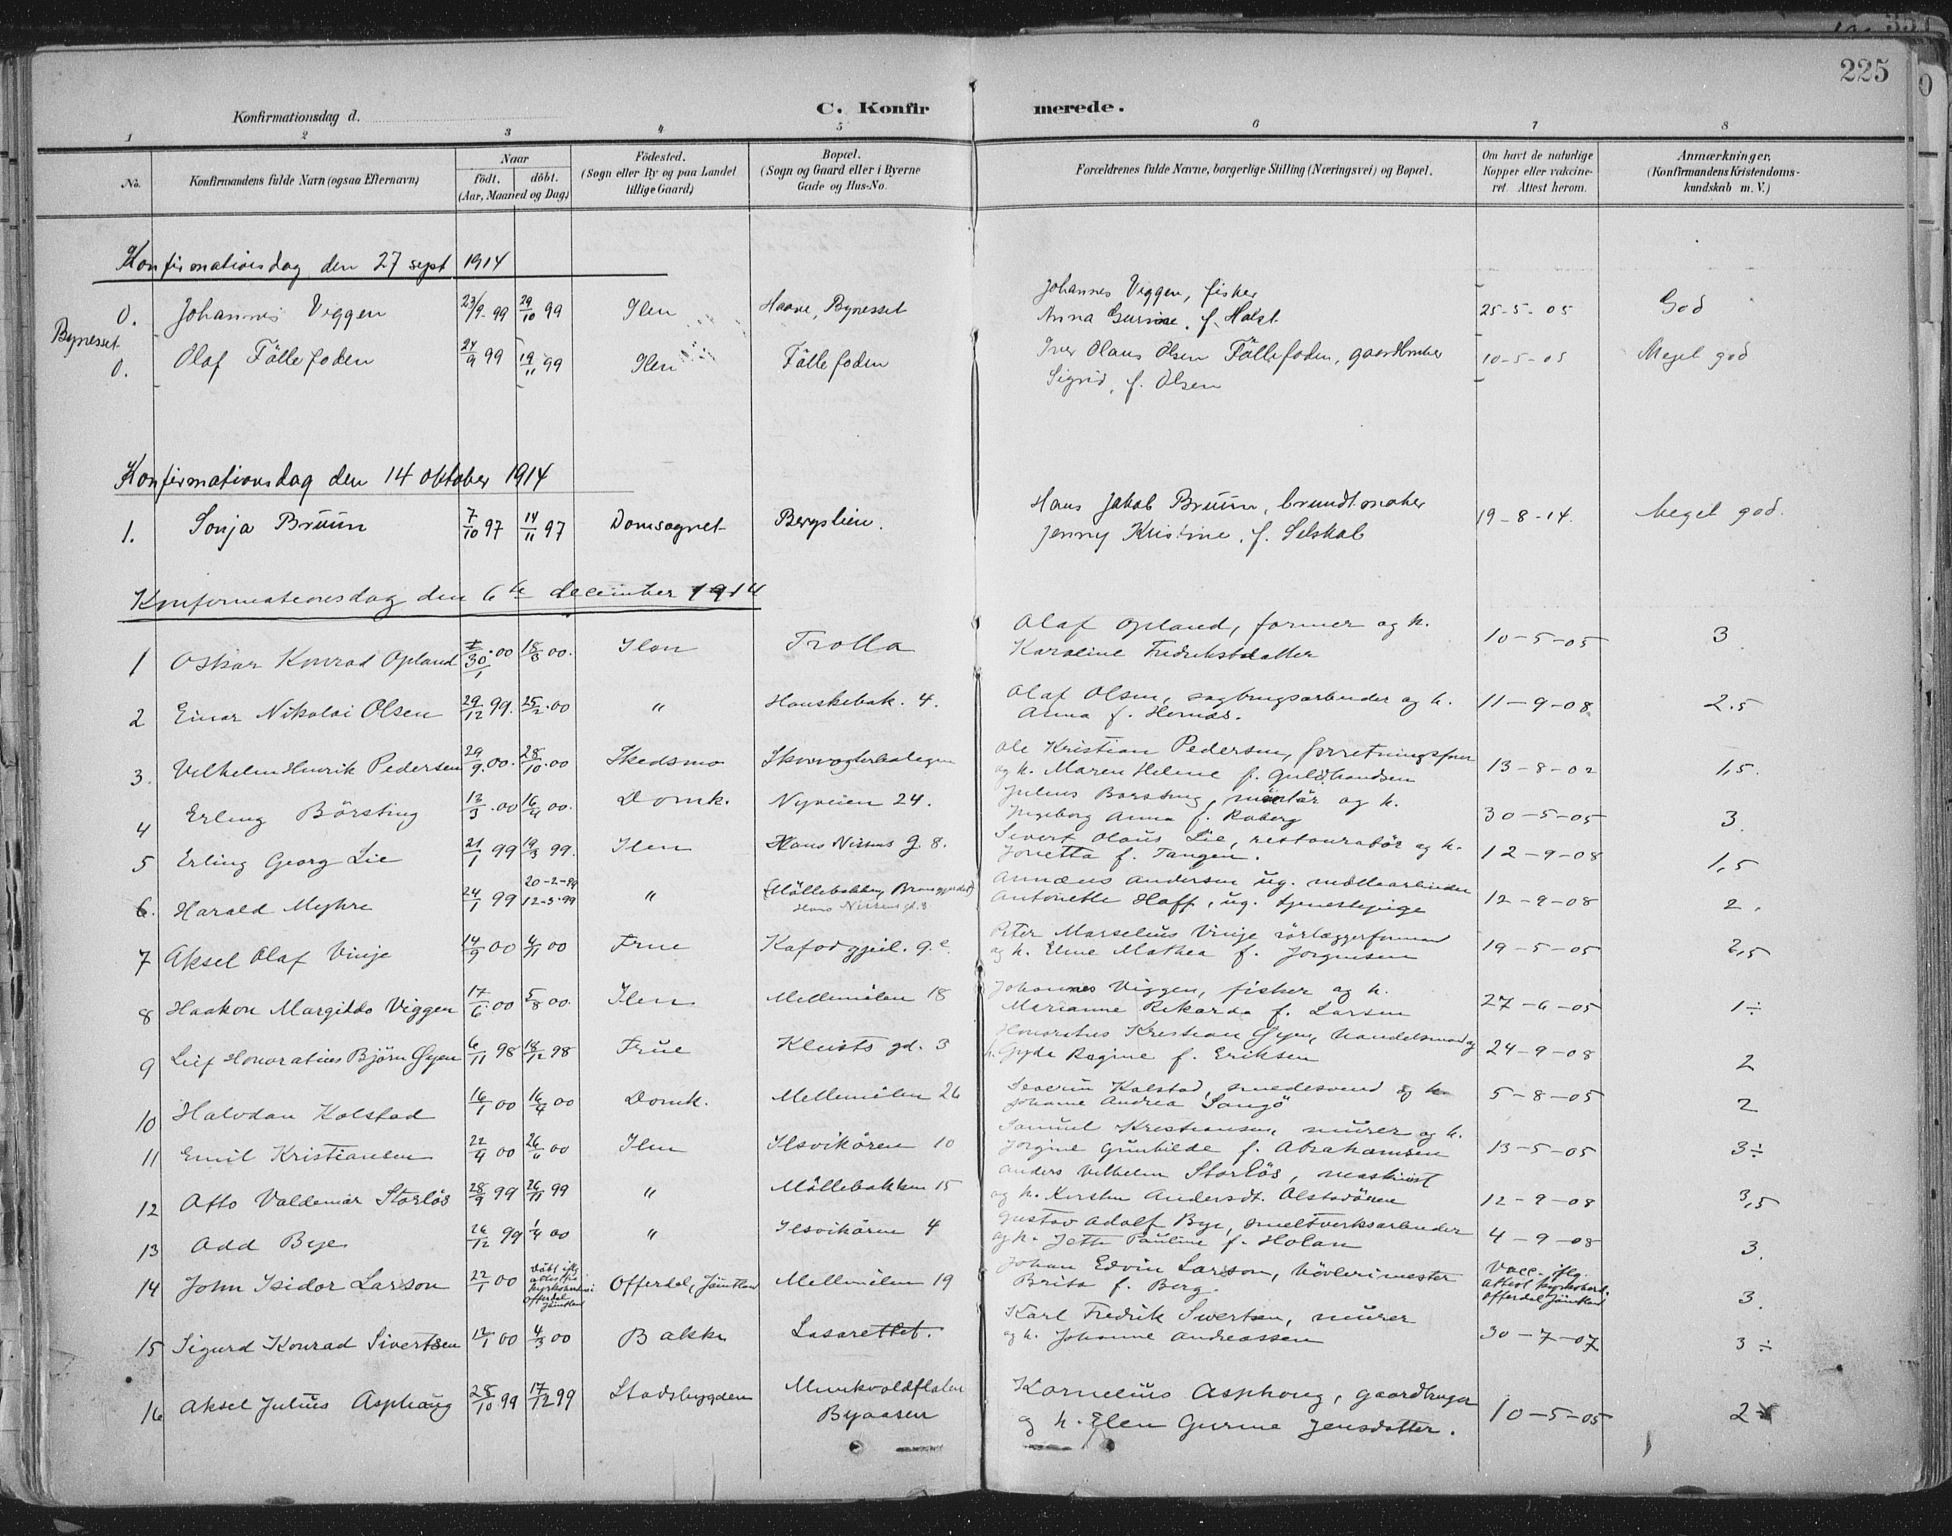 225
Konfirmationsdag d.
C. Konfir merede.
1 2 3 4 5 6 7 8
No.
Konfirmandens fulde Navn (ogsaa Efternavn)
Naar
født. døbt.
(Aar, Maaned og Dag)
Fødested.
(Sogn eller By og paa Landet
tillige Gaard)
Bopæl.
(Sogn og Gaard eller i Byerne
Gade og Hus-No.
Forældrenes fulde Navne, borgerlige Stilling (Næringsvei) og Bopæl.
Om havt de naturlige
Kopper eller vakcine-
ret. Attest herom.
Anmærkninger.
(Konfirmandens Kristendoms-
kundskab m. V.)
Konfirmationsdag den 27 sept 1914
Bynesset
0. Johannes Viggen 23/9 99 29/10 99 Ilen Haave, Bynesset Johannes Viggen, fisker 25-5-05 God
Anna Gurine, f. Holst
0. Olaf Föllefoden 24/9 99 19/11 99 Ilen Föllefoden Iver Olaus Olsen Föllefoden, gaardbruker 10-5-05 Meget god
Sigrid, f. Olsen
Konfirmationsdag den 14 oktober 1914
1. Sonja Bruun 7/10 97 14/11 97 Domsognet Bergslien. Hans Jakob Bruun, brundtmaker 19-8-14. Meget god.
Jenny Kristine, f. Selskab
Konfirmationsdag den 6te december 1914
1 Oskar Konrad Opland 30/1 00 18/3 00. Ilen Trolla Olaf Opland, former og h. 10-5-05 3
Karoline Fredrikstdatter
2 Einar Nikolai Olsen 29/12 99. 25/2 00 " Hanskebak. 4. Olaf Olsen, sagbrugsarbeider og h. 11-9-08. 2.5
Anna f. Hernæs.
3. Vilhelm Henrik Pedersen 29/9 00. 28/10 00 Skedsmo Skovvogterboligen Ole Kristian Pedersen, forretningsfører 13-8-02 1,5.
og h. Maren Helene f. Guldbrandsen
4 Erling Börsting 12/3 00 16/4 00. Domk. Nyveien 24. Julius Borsting, montør og h. 30-5-05 3.
Ingeborg Anna f. Raberg
5 Erling Georg Lie 21/1 99 19/3 99. Ilen Hans Nissens g. 8. Sivert Olaus Lie, restauratør og h. 12-9-08 1,5
Jonetta f. Tangen.
6. Harald Myhre 24/1 99 20-2-99 12-3-99 " (Möllebakken, Bromsgjerdet) Hans Nissens gd. 8 Annæus Andersen ug. möllearbeider 12-9-08 2.
Antonette Hoff, ug. tjenestepige
7 Aksel Olaf Vinje 14/9 00 4/11 00 Frue Peter Marselius Vinje rörlæggerformand 19-5-05 2,5
og h. Eline Mathea f. Jörgensen
8 Haakon Margido Viggen 17/6 00 5/8 00. Ilen Mellemilen 18 Johannes Viggen, fisker og h. 27-6-05 1÷
Marianne Rikarda f. Larsen
9 Leif Honoratius Björn Øyen 6/11 98 18/12 98 Frue Kleists gd. 3 Honoratius Kristian Øyen, handelsmand og 24-9-08 2
h. Gyda Ragine f. Eriksen
10 Halvdan Kolstad 16/1 00 16/4 00 Domk. Mellemilen 26 Severin Kolstad, smedesvend og h. 5-8-05 2
Johanne Andrea Sangö
11 Emil Kristiansen 22/4 00 26/6 00 Ilen Ilsvikören 10 Samuel Kristiansen, murer og h. 13-5-05 3÷
Jörgine Gunhilde f. Abrahamsen
12 Otto Valdemar Storlös 28/9 99 26/11 99 " Möllebakken 15 Anders Vilhelm Storlös, maskinist 12-9-08 3,5
og h. Kirsten Andersdt. Olstadören
13 Odd Bye 26/12 99 1/4 00 " Ilsvikören 4 Gustav Adolf Bye, smeltverksarbeider 4-9-08 3.
og h. Jette Pauline f. Holan
14 John Isidor Larsson 22/1 00 Döbt iflg. attest fra kyrkoherden i Offerdal Jämtland Offerdal, Jämtland Mellemilen 19 Johan Edvin Larsson, hövlerimester Vacc. iflg. attest kyrkoherd. Offerdal Jämtland 3.
Brita f. Berg.
15 Sigurd Konrad Sivertsen 12/1 00 4/3 00 Bakke Lasarettet. Karl Fredrik Sivertsen, murer 30-7-07 3÷
og h. Johanne Andreassen
16 Aksel Julius Asphaug 28/10 99 17/12 99 Stadsbygden Munkvoldflaten Kornelius Asphoug, gaardbruger 10-5-05 2
Byaasen og h. Elen Gurine Jensdatter.